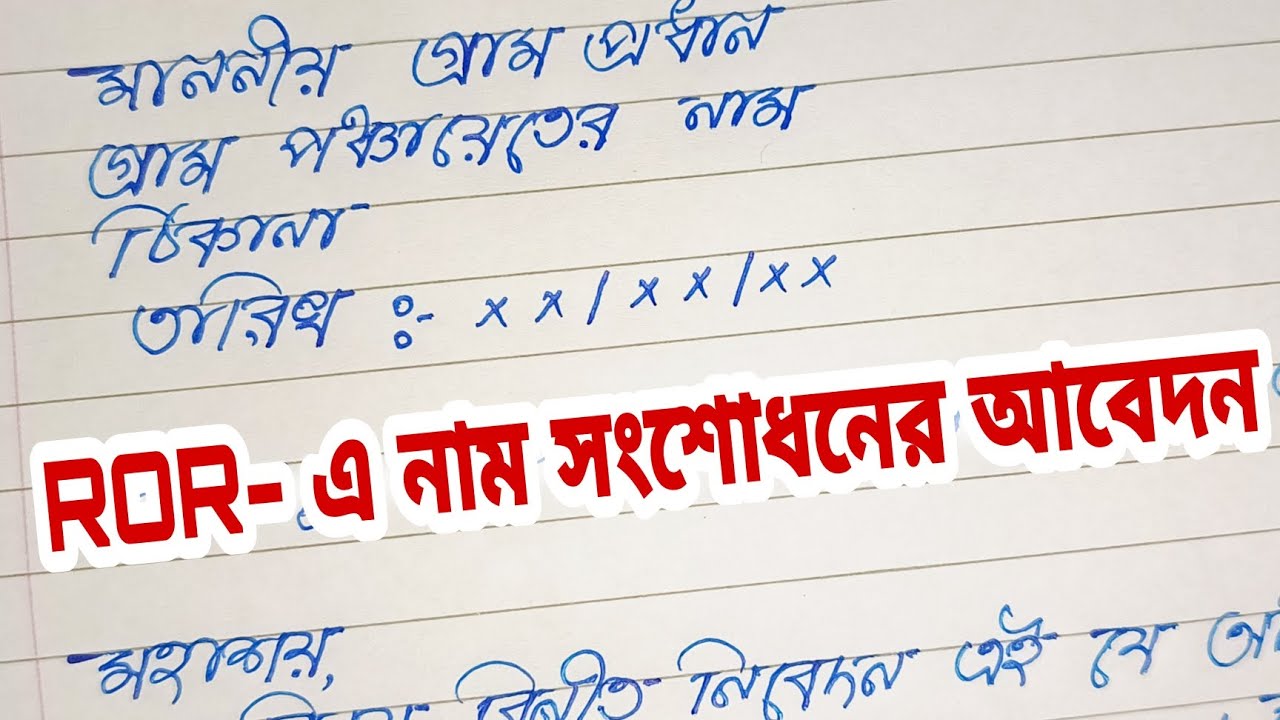 মাননীয় গ্রাম প্রধান
গ্রাম পঞ্চায়েতের নাম
ঠিকানা
তারিখ :- xx/xx/xx
ROR- এ নাম সংশোধনের আবেদন
মহাশয়,
বিনীত নিবেদন এই যে